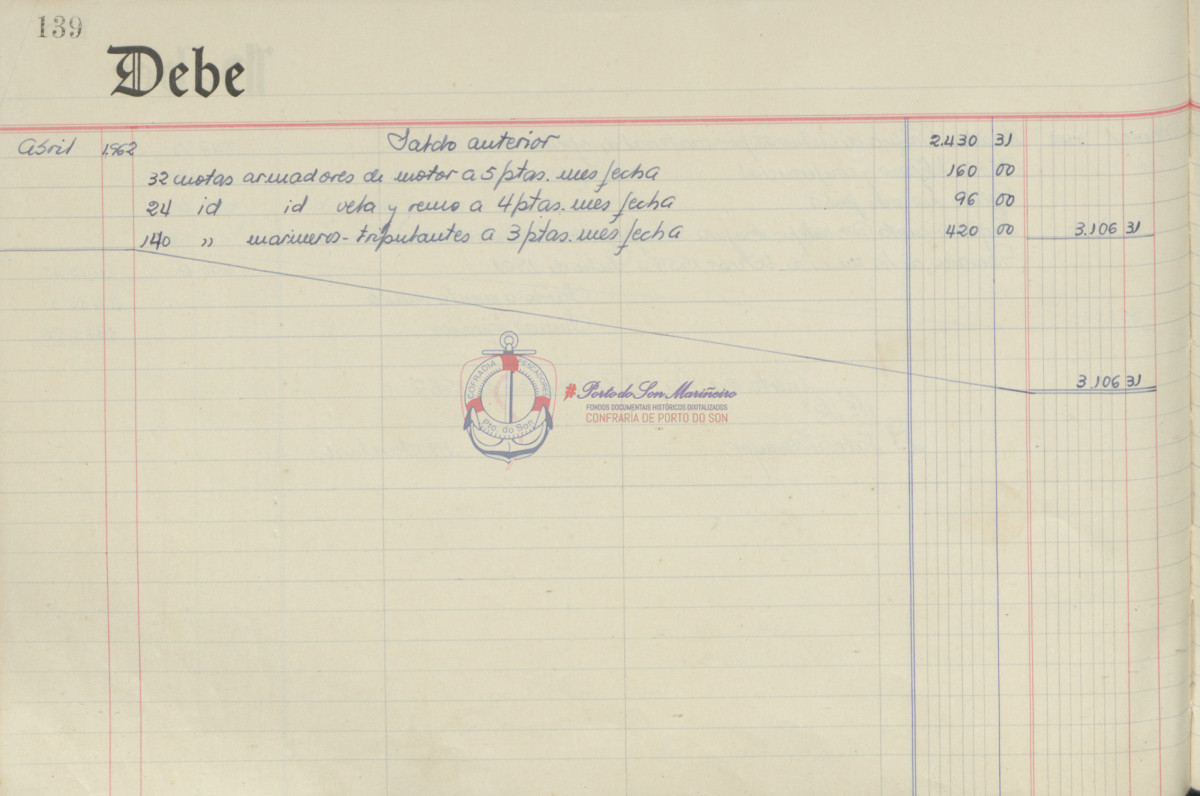 139
Debe
Abril 1.962 Saldo anterior 2.430 31
32 cuotas armadores de motor a 5 ptas. mes fecha 160 00
24 id id vela y remo a 4 ptas. mes fecha 96 00
140 " marineros-tripulantes a 3 ptas. mes fecha 420 00 3.106 31
3.106 31
COFRADIA PESCADORES
Pto. do Son
#Porto do Son Mariñeiro
FONDOS DOCUMENTAIS HISTÓRICOS DIXITALIZADOS
CONFRARÍA DE PORTO DO SON